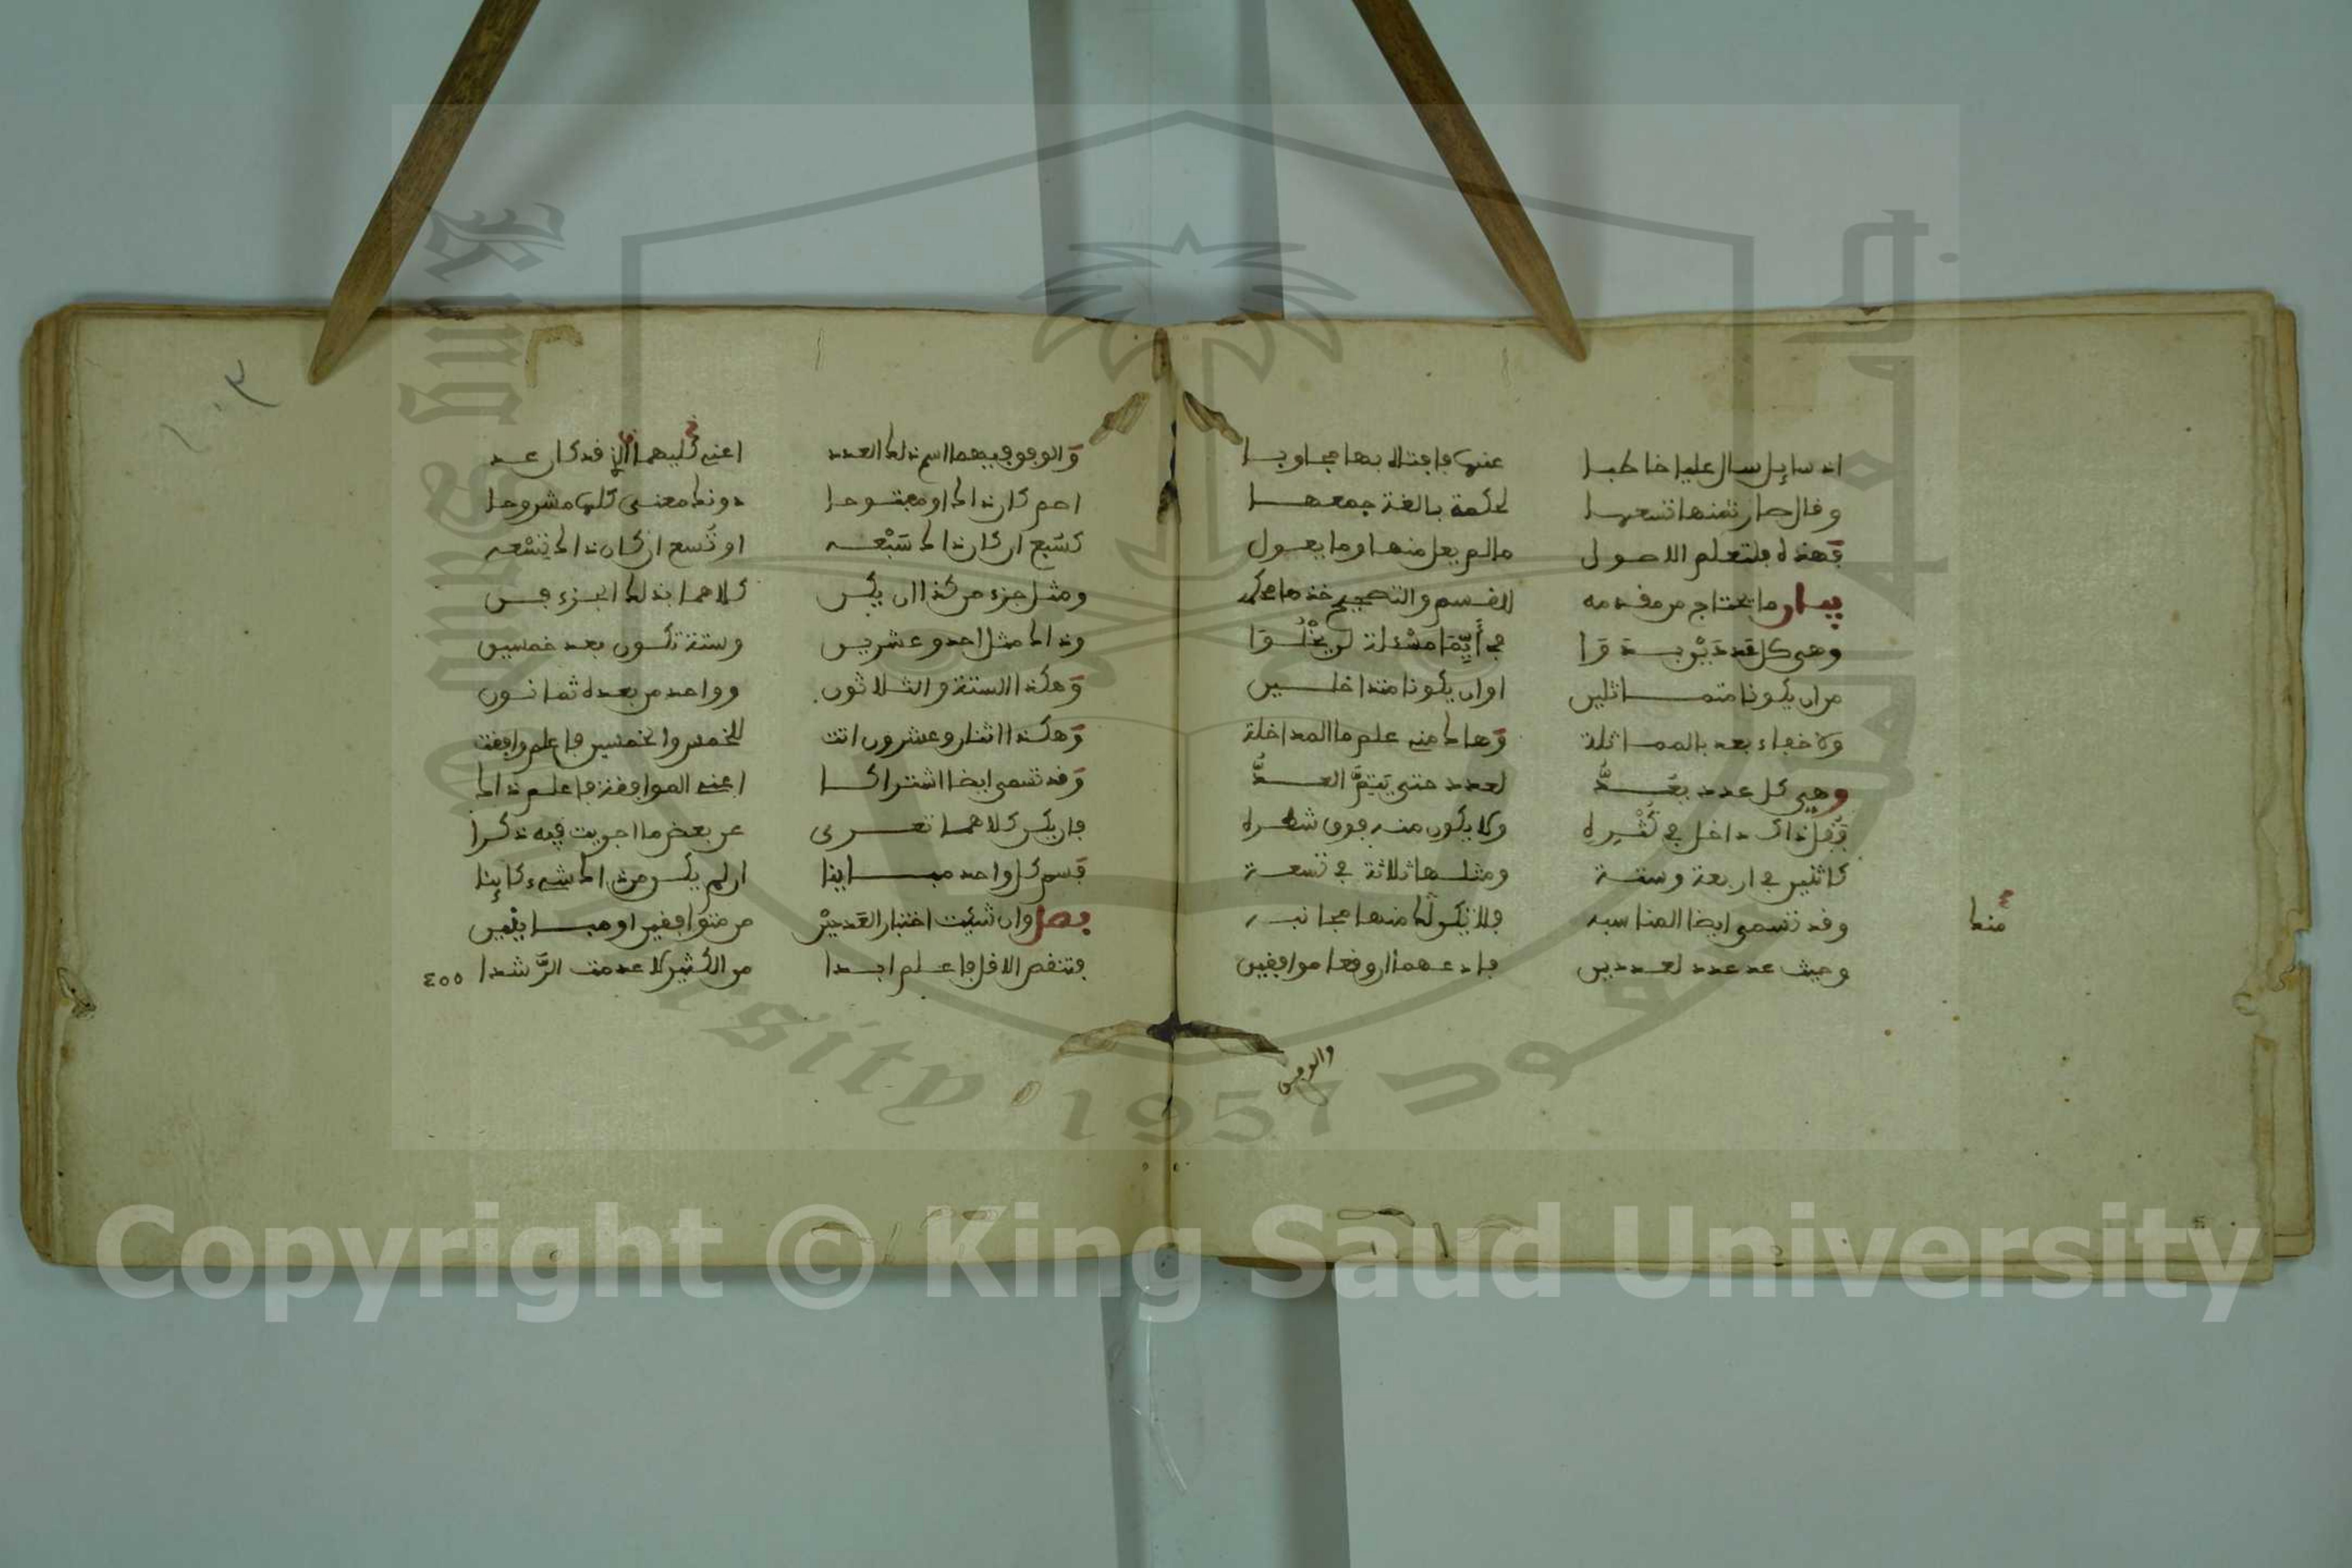 اذ سايل سال عليا خاطبا عنها فافتاه بها مجاوبا
وقال صار ثمنها تسعها لحكمة بالغة جمعها
فهذه فلتعلم الاصول مالم يعل منها وما يعول
بيان ما يحتاج من مقدمه القسم والتصحيح خذها محكمه
وهي كل عددين في أيما مسئلة لن يخلوا
من ان يكونا متماثلين اوان يكونا متداخلين
ولا خفاء بعد بالمماثلة وهاك منه علم ما المداخلة
وهي كل عدد يعد لعدد حتى يتم العد
فقل ذاك داخل في كثيره ولا يكون منه فوق شطره
كاثنين في اربعة وستة ومثلها ثلاثة في تسعة
وقد تسمى ايضا المناسبه فلا تكن لها منها مجانبه
منك
وحيث عد عدد لعددين فادعهما ارفعا موافقين
والوفق
والوفق فيهما اسم ذلك العدد اعني كليهما الذي قد كان عد
اصم كان ذاك او مفتوحا دونك معنى كلها مشروحا
كسبع ان كان ذاك سبعه او تسع ان كان ذاك تسعه
ومثل جزء من كذا ان يكن كلاهما بذلك الجزء
وذاك مثل احد وعشرين وستة تكون بعد خمسين
وهكذا الستة والثلاثون وواحد من بعده ثمانون
وهكذا اثنان وعشرون اتت للخمس والخمسين فاعلم وافقت
وقد تسمى ايضا اشتراكا اعني الموافقة فاعلم ذاك
فان يكن كلاهما تعرى عن بعض ما اجريت فيه ذكرا
فسم كل واحد مباينا ان لم يكن من ذاك شيء كاينا
فصل وان شئت اختبار العددين من متوافقين او مباينين
فتنقص الاقل فاعلم ابدا من الكثير لا عدمت الرشدا
٤٥٥
King Saud University
جامعة الملك سعود
1957
Copyright © King Saud University